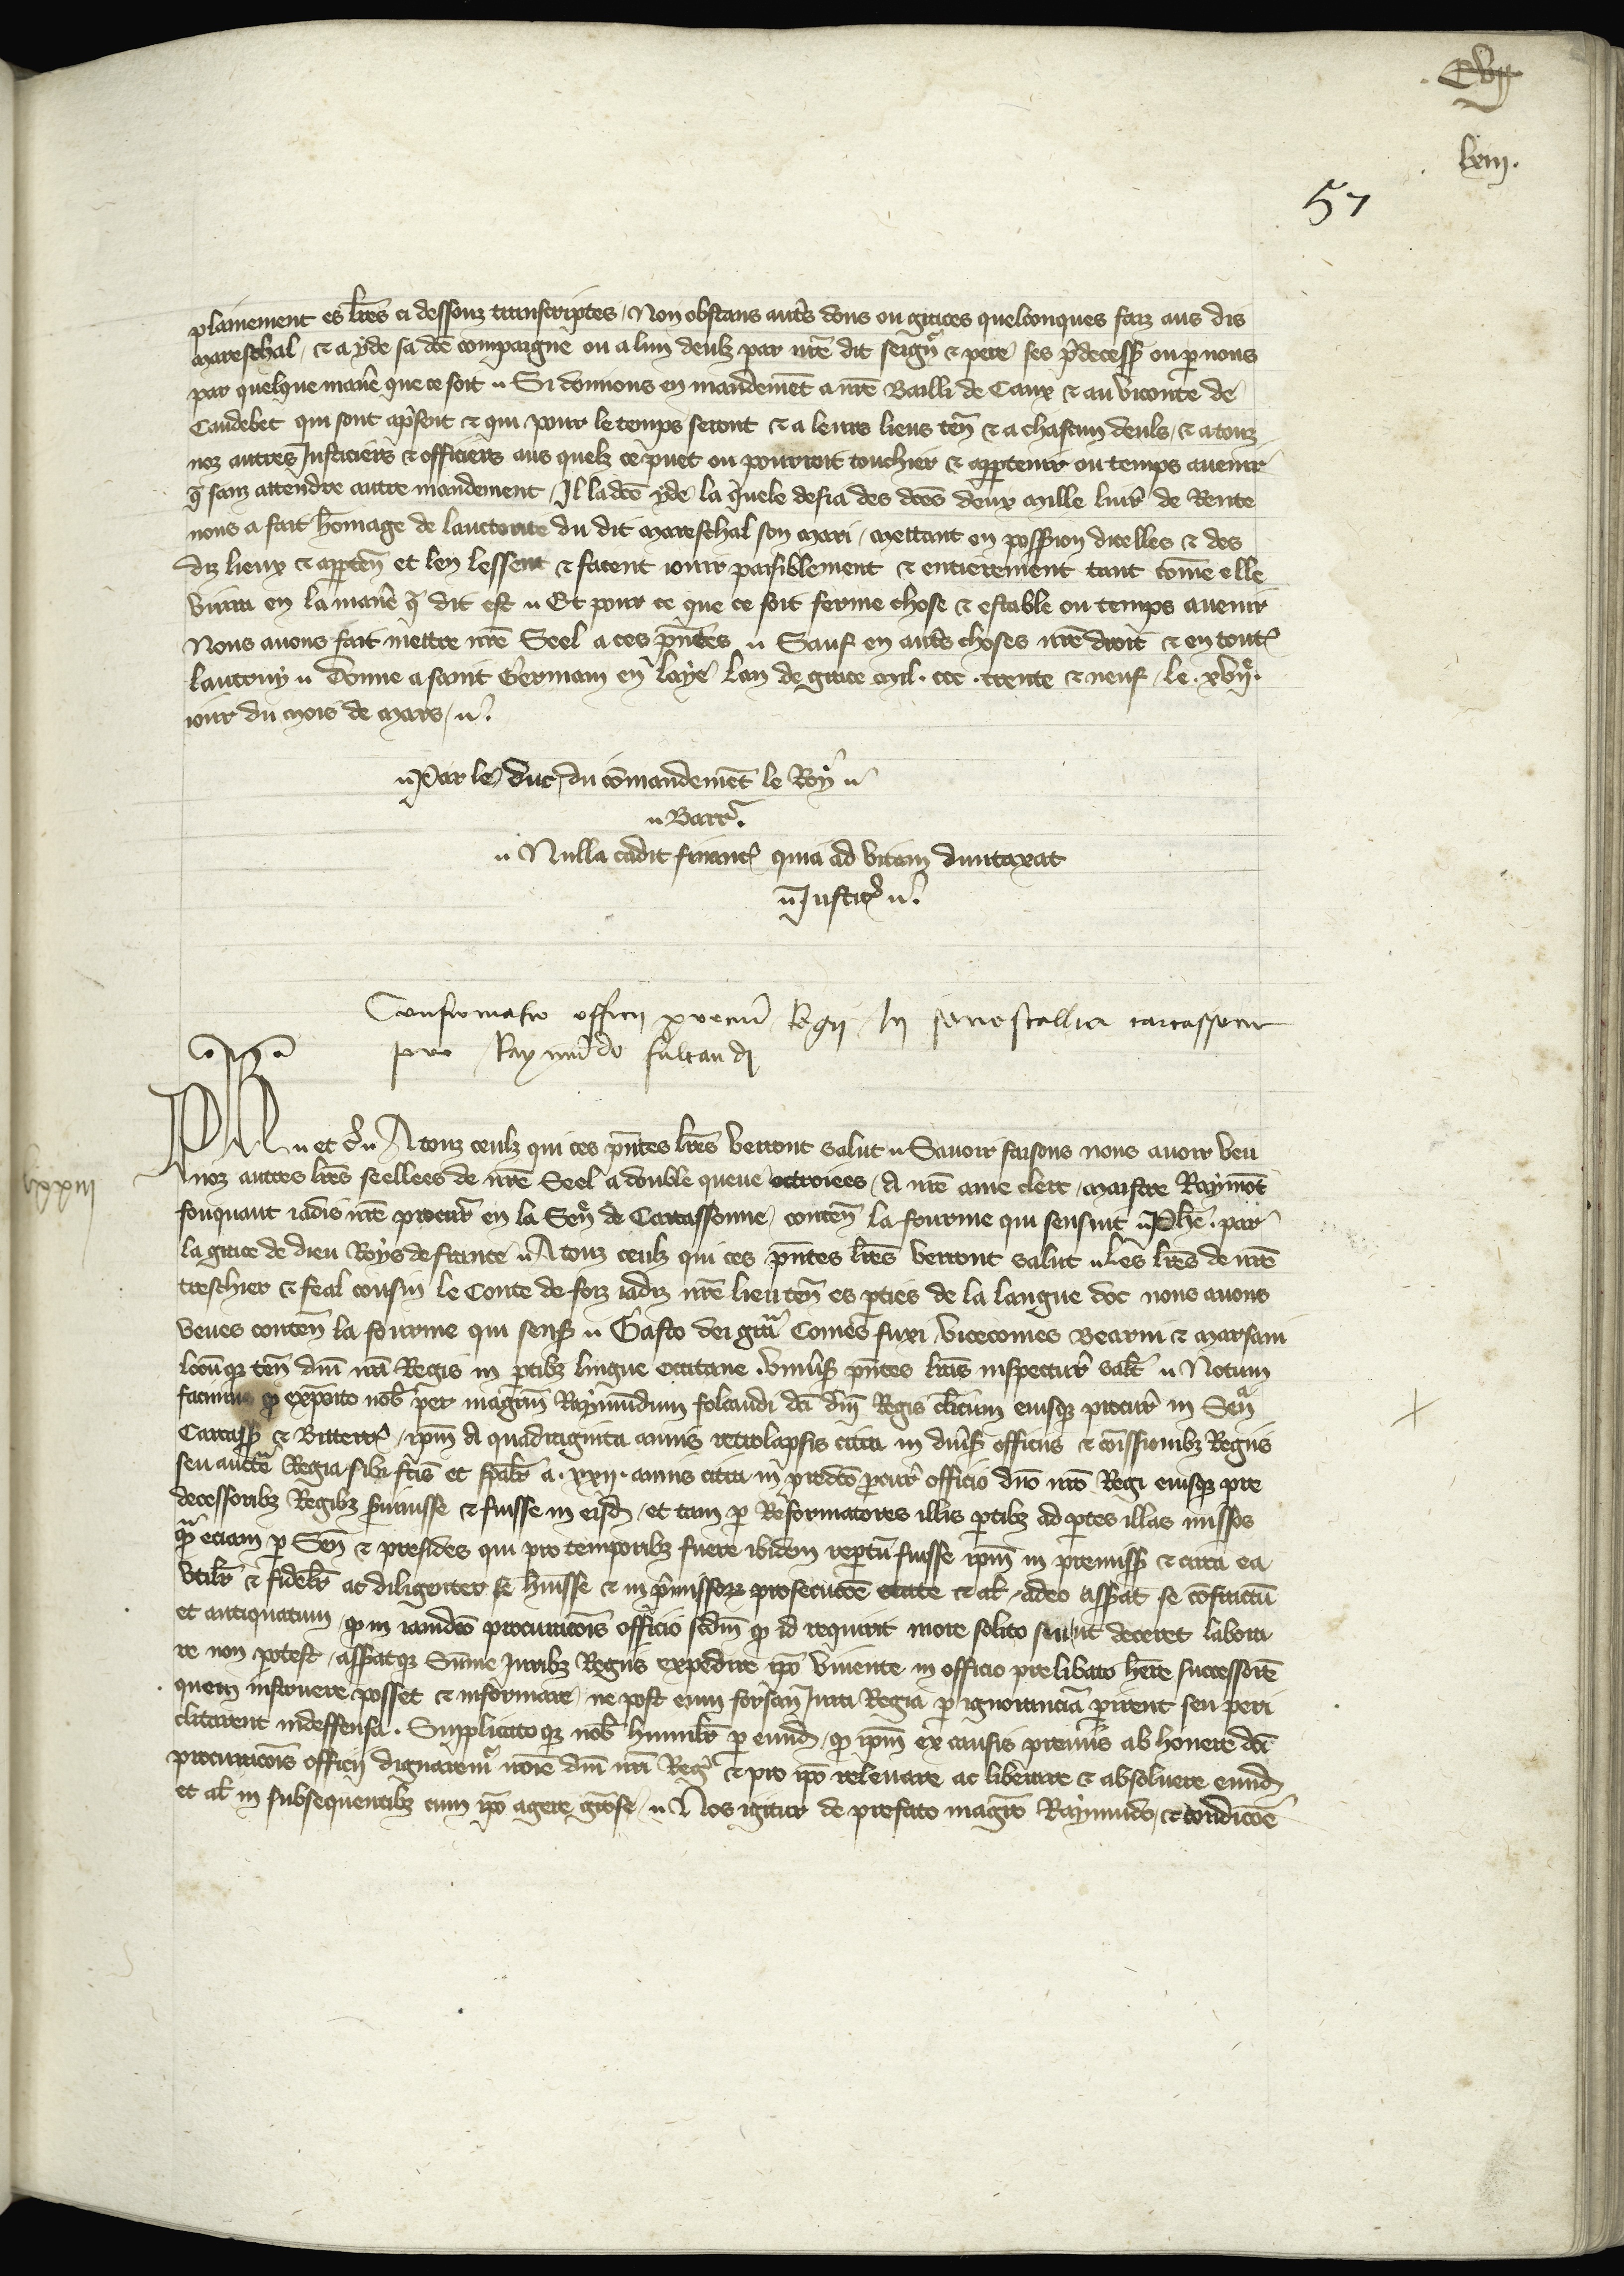 Cvij
lxiij.
57
plainement es lres ci dessouz transcriptes / Non obstans autres dons ou graces quelconques faiz aus dis
mareschal / et a yde sa dce compaigne ou a lun deulz par nre dit seigneur et pere ses predecess ou par nous
par quelque maniere que ce soit Si donnons en mandement a nre Bailli de Caux et au viconte de
Caudebec qui sont a present et qui pour le temps seront et a leurs lieus ten et a chascun deuls / et a touz
noz autres Justiciers et officiers aus quelz ce puet ou pourroit touchier et appartenir ou temps avenir
que sanz attendre autre mandement / Il ladce yde la quele desia des dces deux mille livr de Rente
nous a fait homage de lauctorite du dit mareschal son mari / mettant en possession dicelles et des
diz lieux et apparten et len lessent et facent ioir paisiblement et entierement tant come elle
vivra en la maniere que dit est Et pour ce que ce soit ferme chose et estable ou temps avenir
Nous avons fait mettre nre Seel a ces pntes Sauf en autres choses nre droit et en toutes
lautruy Donne a saint Germain en laye lan de grace mil . ccc . trente et neuf / le . xvije .
iour du mois de mars /
Par le duc / du comandement le Roy
Barr
Nulla cadit financ quia ad vitam duntaxat
Justic
Confirmatio officii procur Regii In senescallia carcassone
pro Raymundo fulcaudi
lxxiij
Phe et c Atouz ceulz qui ces pntes lres verront salut Savoir faisons nous avoir veu
noz autres lres seellees de nre Seel a double queue octroiees / A nre ame clerc / maistre Raymont
fouquaut iadis nre procur en la Sen de Carcassonne / conten la fourme qui sensuit Phe . par
la grace de dieu Roys de france Atouz ceulz qui ces pntes lres verront salut Les lres de nre
treschier et feal cousin le Conte de foiz iadiz nre lieuten es parties de la langue doc nous avons
veues conten la fourme qui sens Gasto dei gra Comes fuxi vicecomes Bearnii et Marsani
locumque ten dni nri Regis in partibz lingue occitane . Univs pntes lras inspectur salt Notum
facimus quod exposito nob per magrm Raymundum folcaudi dci dni Regis clicum eiusque procur in Sen
Carcass et Bitterr / ipm A quadraginta annis retrolapsis citra in divs officiis et comissionibz Regiis
seu aucte Regia sibi fcis et spalr a . xxij . annis citra in predco procur officio dno nro Regi eiusque pre
decessoribz Regibz servivisse et fuisse in eisd / et tam per Reformatores illis partibz ad partes illas missos
quam eciam per Sen et presides qui pro temporibz fuere ibidem repertu fuisse ipm in premiss et circa ea
utilr et fidelr ac diligenter se huisse et in premissorz prosecucoe etate et al / adeo asserat se confractu
et antiquatum / quod in iamdco procuracois officio scdm quod id requirit more solito sicut deceret labora
re non potest / asseratque Sume Juribz Regiis expedire ipo vivente in officio prelibato here successore
quem instruere posset et informare / ne post eum forsan Jura Regia per ignorancia perirent seu peri
clitarent indeffensa . Supplicatoque nob humilr per eumd / quod ipm ex causis premis ab honere dci
procuracois officii dignaremur noie dni nri Reg et pro ipo relevare ac liberare et absolvere eumd
et al in subsequentibz cum ipo agere grose / Nos igitur de prefato magro Raymundo / et condicoe